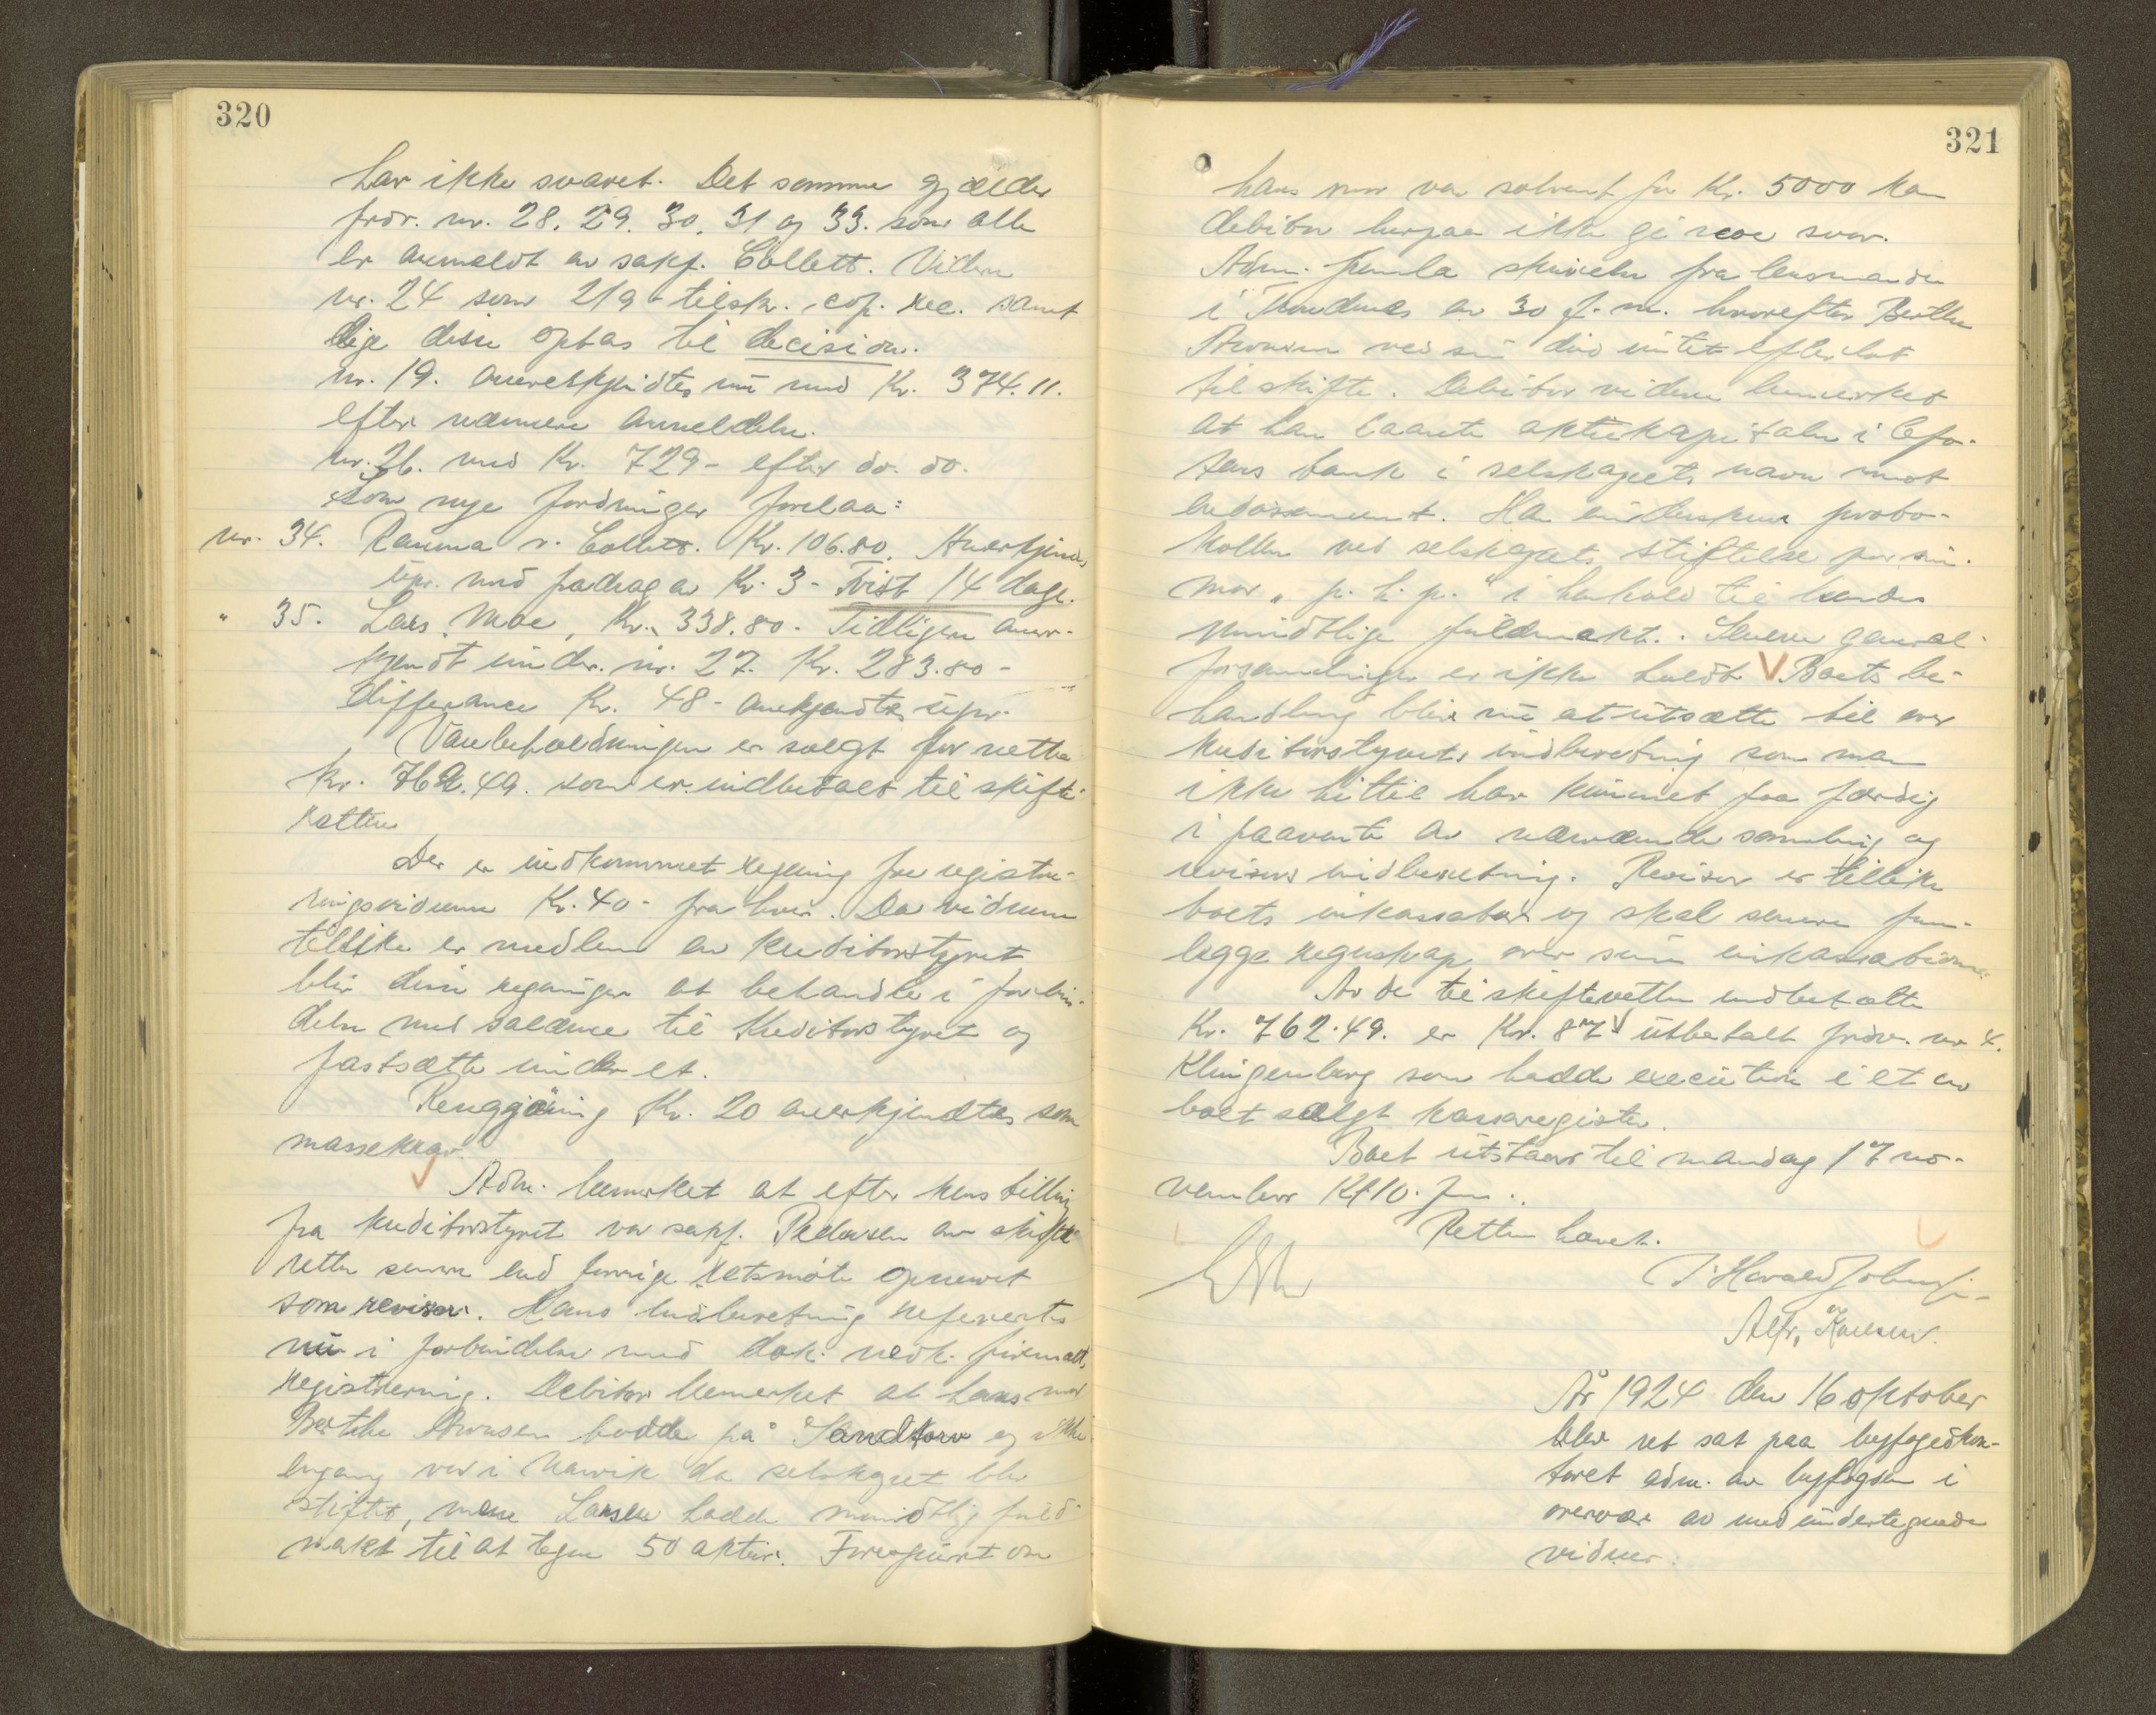 320
har ikke svaret. Det samme gjælder
fordr. nr. 28. 29. 30. 31 og 33. som alle
er anmeldt av sakf. Collett. Videre
nr. 24 som 219 - tilsk. cop. samt
lige disse optas til decision.
nr. 19. anerkjendtes nu med Kr. 374.11.
efter nærmere anmeldelse.
nr. 26. med Kr. 729 - efter do. do.
Som nye fordringer forelaa:
nr. 34. Rauma v. Collett. Kr. 106.80. Anerkjendes
upr. med fradrag av Kr. 3 - Frist 14 dage.
" 35. Lars Moe, Kr. 338.80 - Tidligere aner-
kjendt under nr. 27. Kr. 283.80 -
differance Kr. 48 - anerkjendtes upr.
Varebeholdningen er solgt for netto
kr. 762.49. som er indbetalt til skifte-
retten
Der er indkommet regning fra registre-
ringsvidnene Kr. 40 - fra hver. Da vidnene
tillike er medlem av kreditorstyret
blir disse regninger at behandle i forbin-
delse med salærene til kreditorstyret og
fastsætte under et.
Rengjøring Kr. 20 anerkjendtes som
massekrav
Adm. bemerket at efter henstilling
fra kreditorstyret var sakf. Pedersen av skifte
retten senere end forrige retsmöte opnevnt
som revisor. Hans indberetning refereertes
nu i forbindelse med dok. vedk. firmaets
registrering. Debitor bemerket at hans mor
Berthe Aronsen bodde på Sandtorv og ikke
engang var i Narvik da selskapet blev
stiftet, men Larsen hadde mundtlig fuld
makt til at tegne 50 aktier. Forespurt om
321
hans mor var solvent for Kr. 5000 kan
debitor herpaa ikke gi noe svar.
Adm. fremla skrivelse fra lensmanden
i Trondenes av 30 f. m. hvorefter Berthe
Aronsen ved sin død intet efterlot
til skifte. Debitor videre bemerket
at han laante aktiekapitalen i Lofo-
tens bank i selskapets navn mot
endossement. Han underskrev proto-
kollen ved selskapets stiftelse for sin
mor "p. h. p." i henhold til hendes
mundtlige fuldmakt. Senere general-
forsamlinger er ikke holdt Boets be-
handling blir nu at utsætte til over
kreditorstyrets indberetning som man
ikke hittil har kunnet faa færdig
i paavente av nærværende samling og
revisors indberetning. Revisor er tillike
boets inkassator og skal senere frem-
lægge regnskap over sin inkassation
Av de til skifteretten indbetalte
Kr. 762.49. er Kr. 87 utbetalt fordr. nr 4.
Klingenberg som hadde execution i et av
boet solgt kassaregister.
Boet utstaar til mandag 17 no-
vember Kl 10. fm.
Retten hævet.
Alfr. Karlsen.
År 1924 den 16 oktober
blev ret sat paa byfogedkon-
toret adm. av byfogden i
overvær av medundertegnede
vidner: